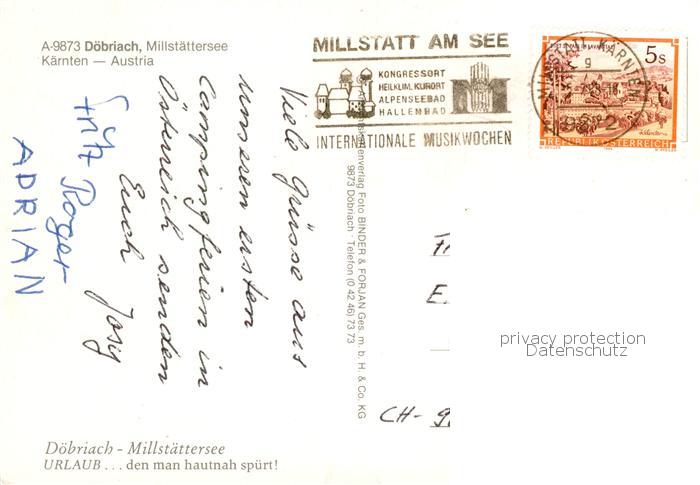 A-9873 Döbriach, Millstättersee
Kärnten — Austria
MILLSTATT AM SEE
KONGRESSORT
HEILKLIM. KURORT
ALPENSEEBAD
HALLENBAD
INTERNATIONALE MUSIKWOCHEN
5s
REPUBLIK ÖSTERREICH
Viele Grüsse aus
unseren ersten
Campingferien in
Österreich senden
Euch Josy
Fritz Roger
ADRIAN
Ansichtskartenverlag Foto BINDER & FORJAN Ges. m. b. H. & Co. KG
9873 Döbriach · Telefon (0 42 46) 73 73
E.
CH- 9
privacy protection
Datenschutz
Döbriach - Millstättersee
URLAUB . . . den man hautnah spürt!